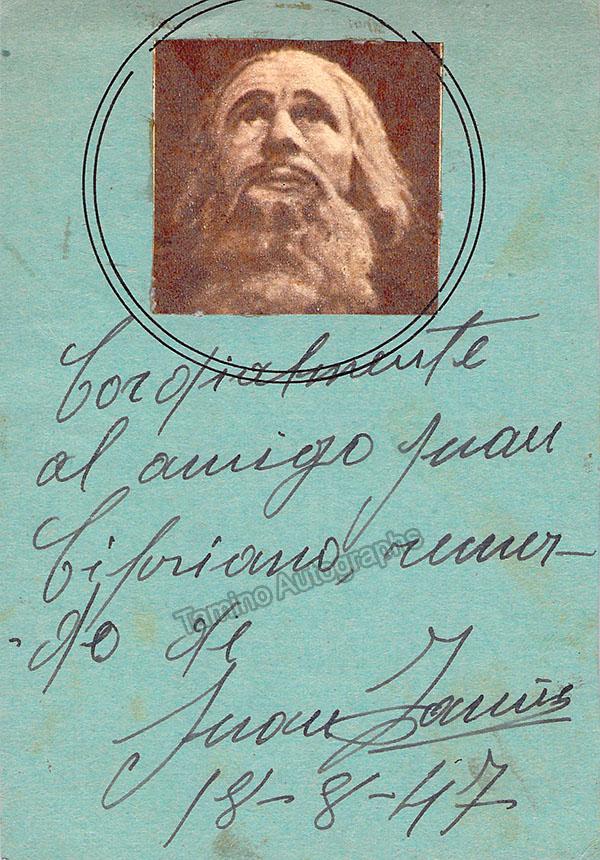 Cordialmente
al amigo Juan
Cipriano, recuer-
-do de
Juan
18-8-47
Tamino Autographs